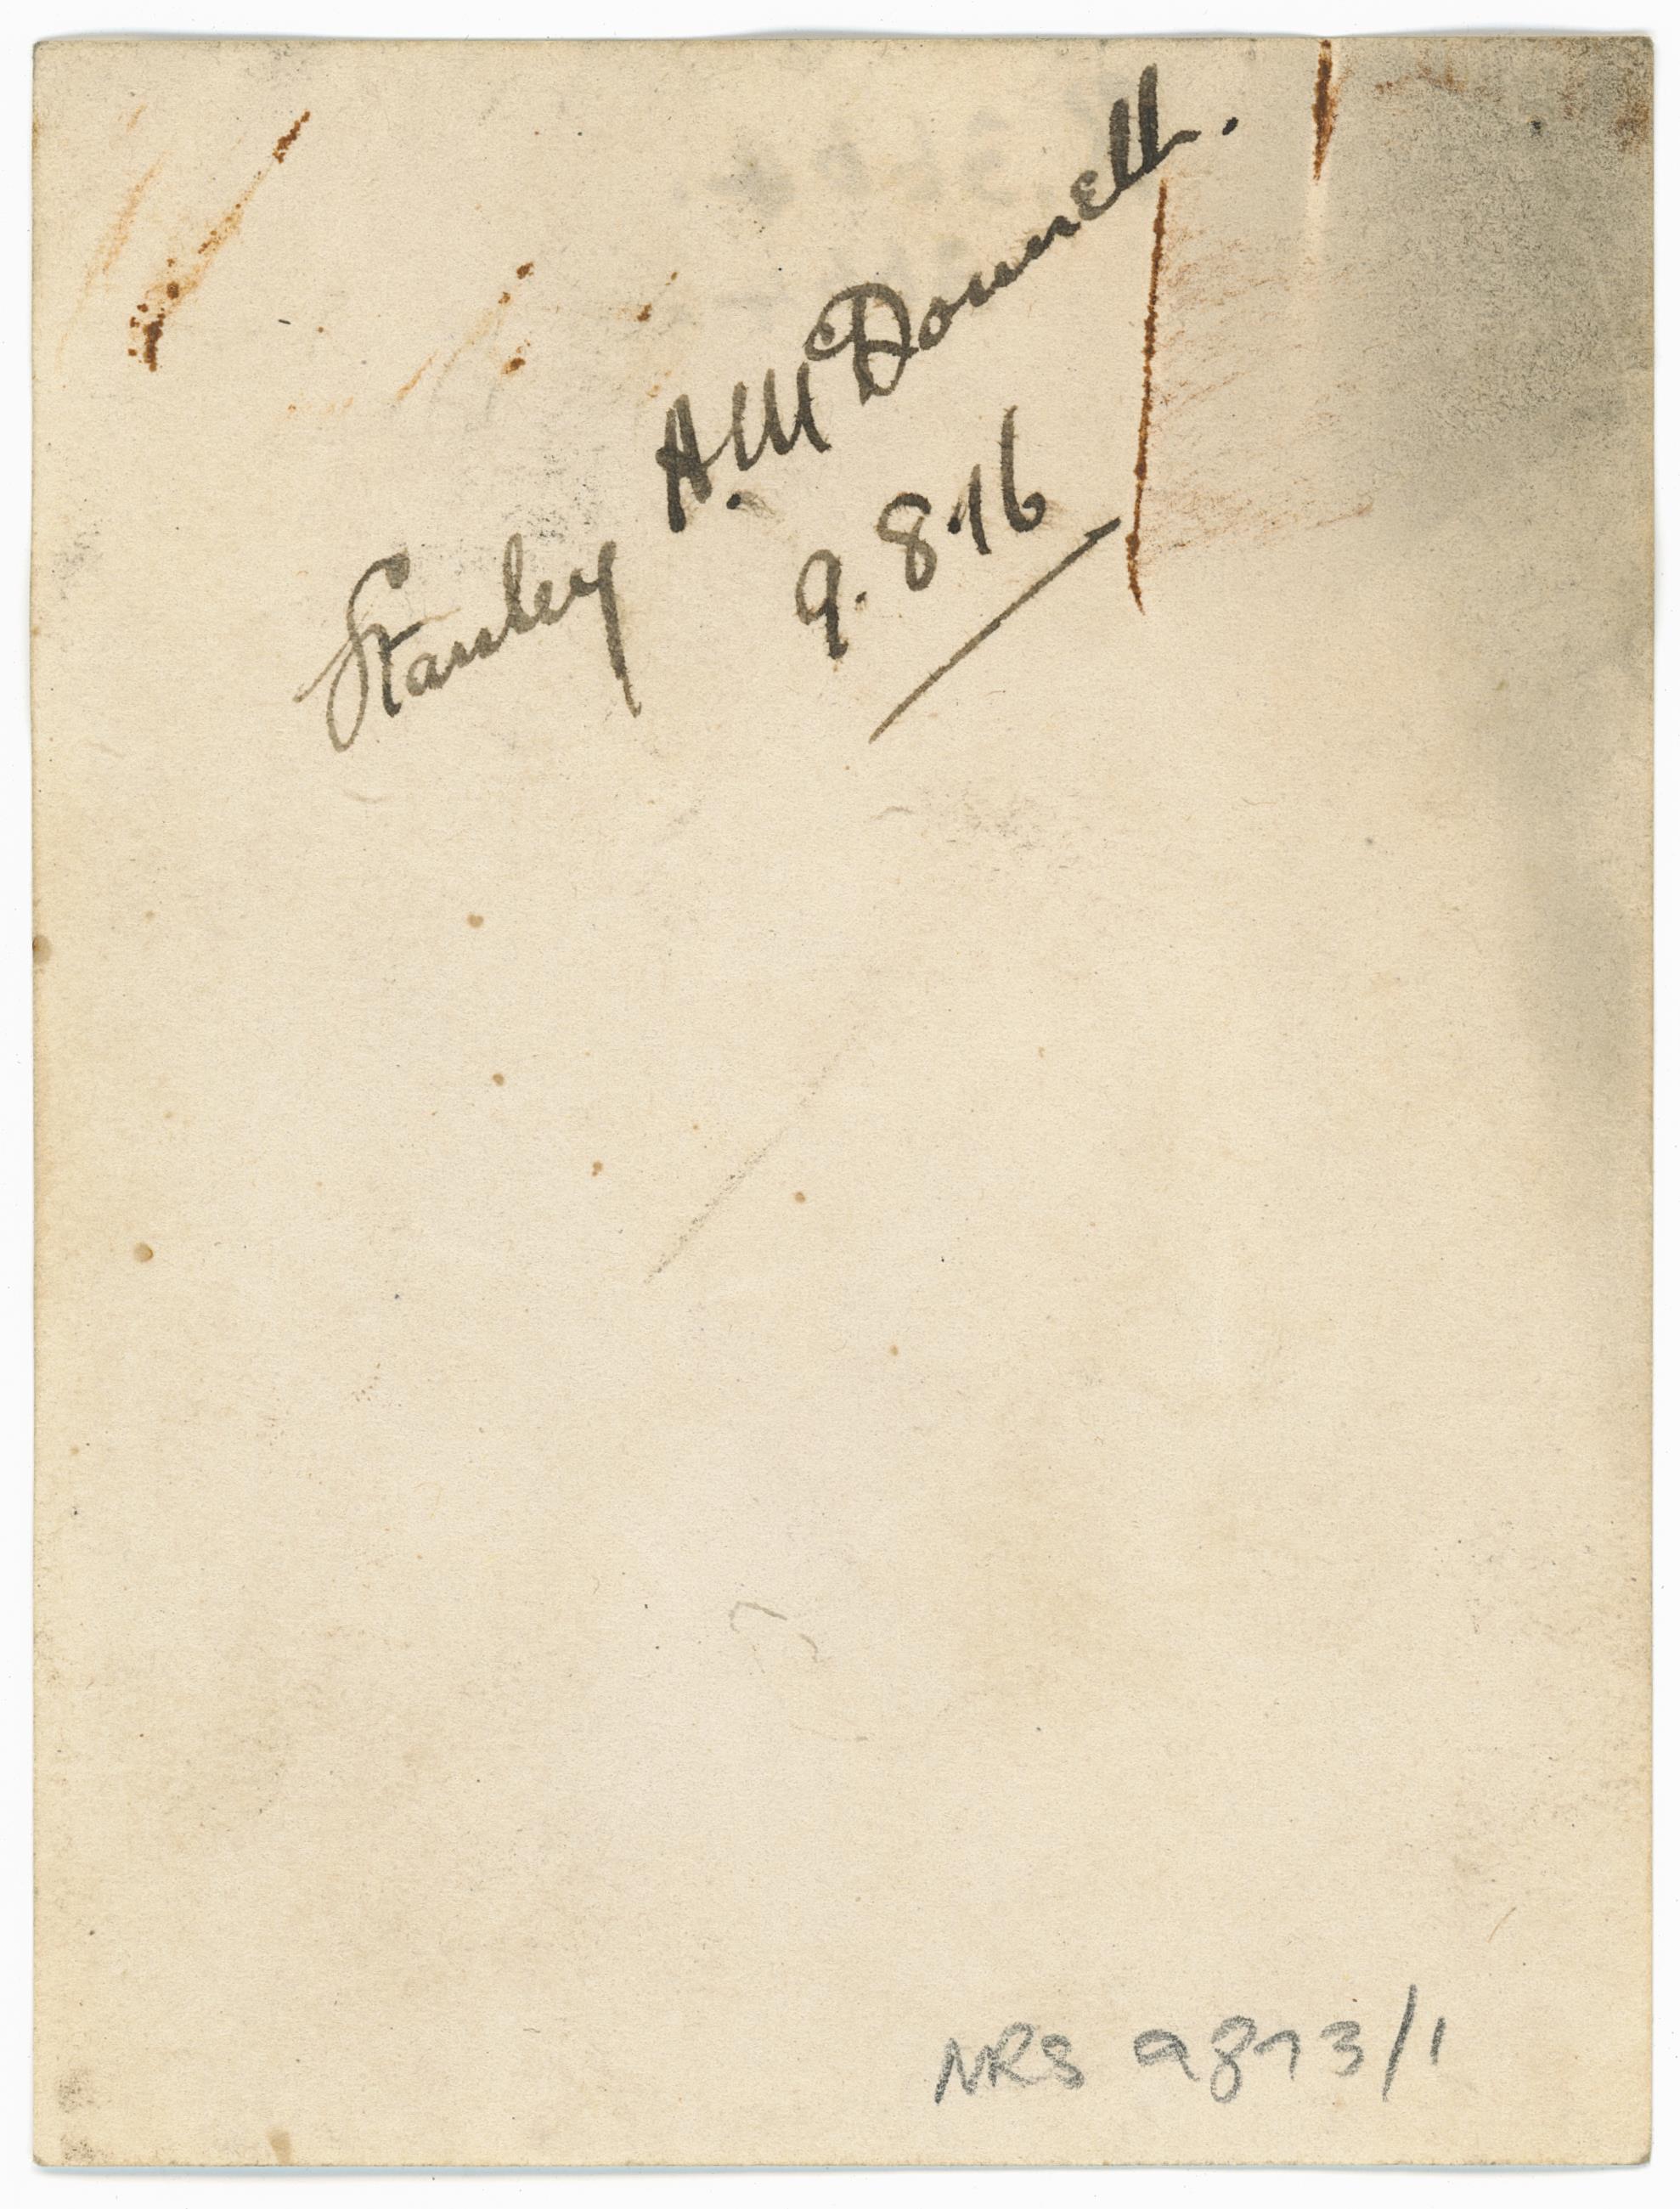 Stanley A. McDonnell.
9.8.16
NRS 9873/1